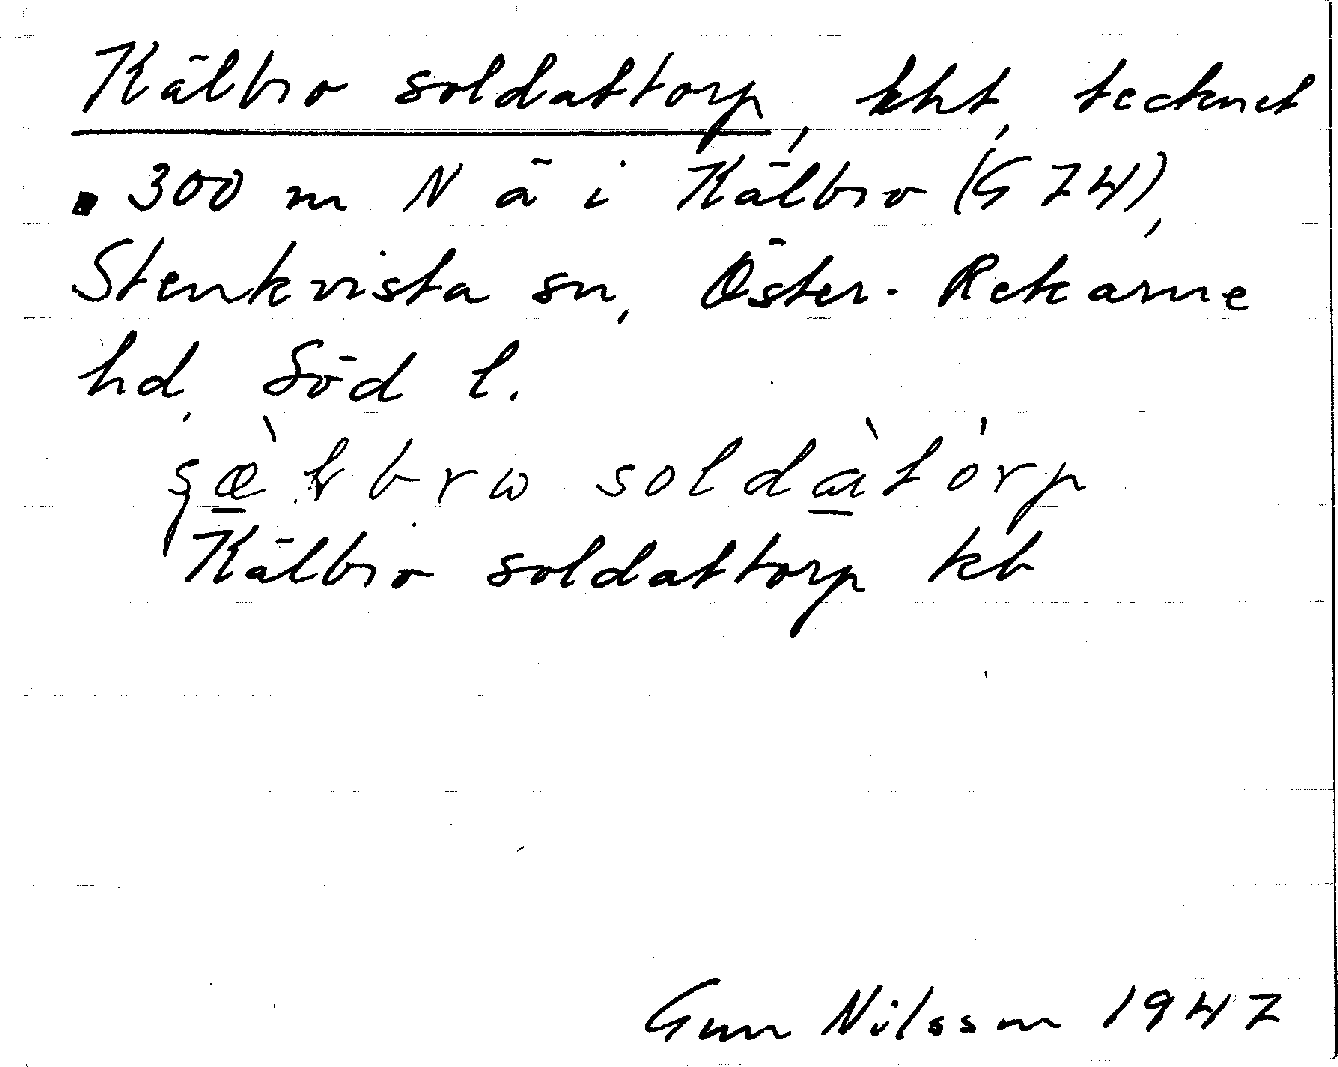 Kälbro soldattorp, kht, tecknet
300 m N ä i Kälbro (G 74),
Stenkvista sn, Öster-Rekarne
hd, Söd l.
Kälbro soldattorp kb
Gun Nilsson 1947